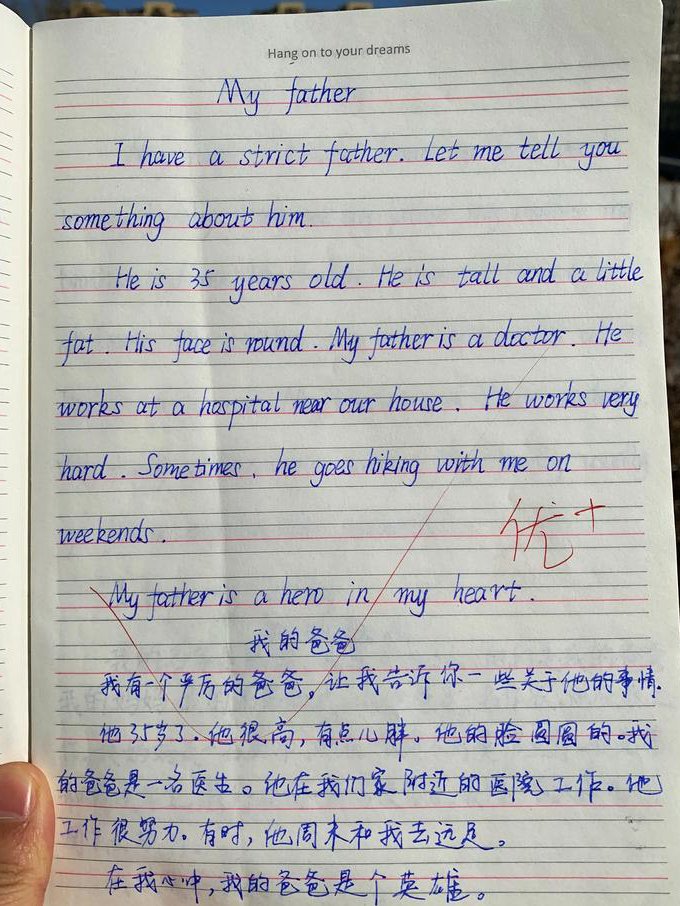 Hang on to your dreams
My father
I have a strict father. Let me tell you
something about him.
He is 35 years old. He is tall and a little
fat. His face is round. My father is a doctor. He
works at a hospital near our house. He works very
hard. Sometimes, he goes hiking with me on
weekends.
优+
My father is a hero in my heart.
我的爸爸
我有一个严厉的爸爸。让我告诉你一些关于他的事情.
他35岁了.他很高,有点儿胖。他的脸圆圆的。我
的爸爸是一名医生。他在我们家附近的医院工作。他
工作很努力。有时,他周末和我去远足。
在我心中,我的爸爸是个英雄。